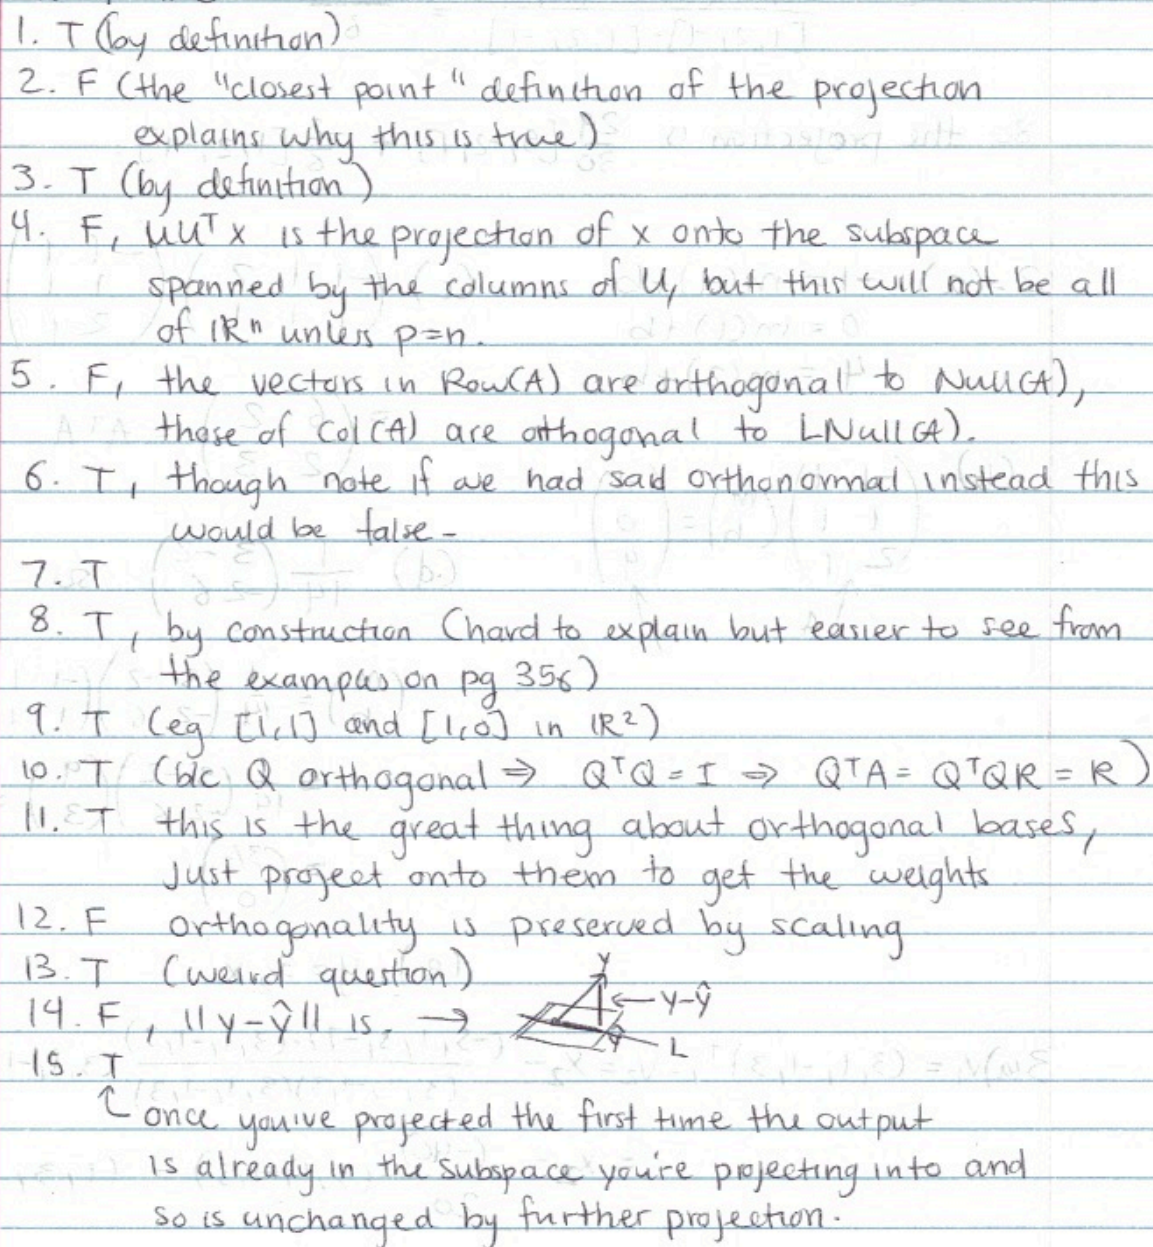 1. T (by definition)
2. F (the "closest point" definition of the projection
explains why this is true)
3. T (by definition)
4. F, UUᵀx is the projection of x onto the subspace
spanned by the columns of U, but this will not be all
of ℝⁿ unless p=n.
5. F, the vectors in Row(A) are orthogonal to Null(A),
those of Col(A) are othogonal to LNull(A).
6. T, though note if we had said orthonormal instead this
would be false-
7. T
8. T, by construction (hard to explain but easier to see from
the examples on pg 356)
9. T (eg [1,1] and [1,0] in ℝ²)
10. T (b/c Q orthogonal ⇒ QᵀQ = I ⇒ QᵀA = QᵀQR = R)
11. T this is the great thing about orthogonal bases,
just project onto them to get the weights
12. F orthogonality is preserved by scaling
13. T (weird question)
y
14. F, ||y-ŷ|| is. → ← y-ŷ
ŷ L
15. T
↑ once you've projected the first time the output
is already in the subspace you're projecting into and
so is unchanged by further projection.